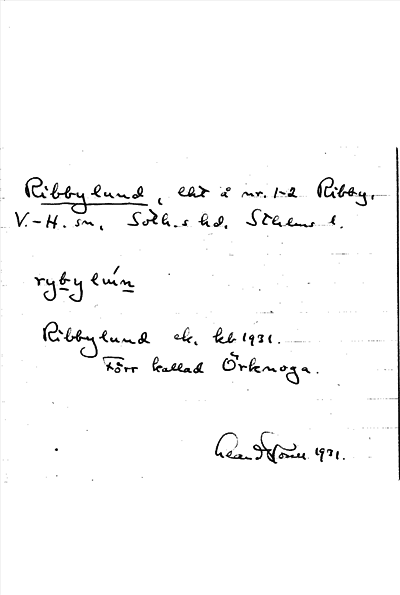 Ribbylund, lht å nr. 1-2 Ribby,
V.-H. sn, Soth.s hd. Sthlms l.
rybylun
Ribbylund ek. kb 1931.
Förr kallad Örknoga.
1931.